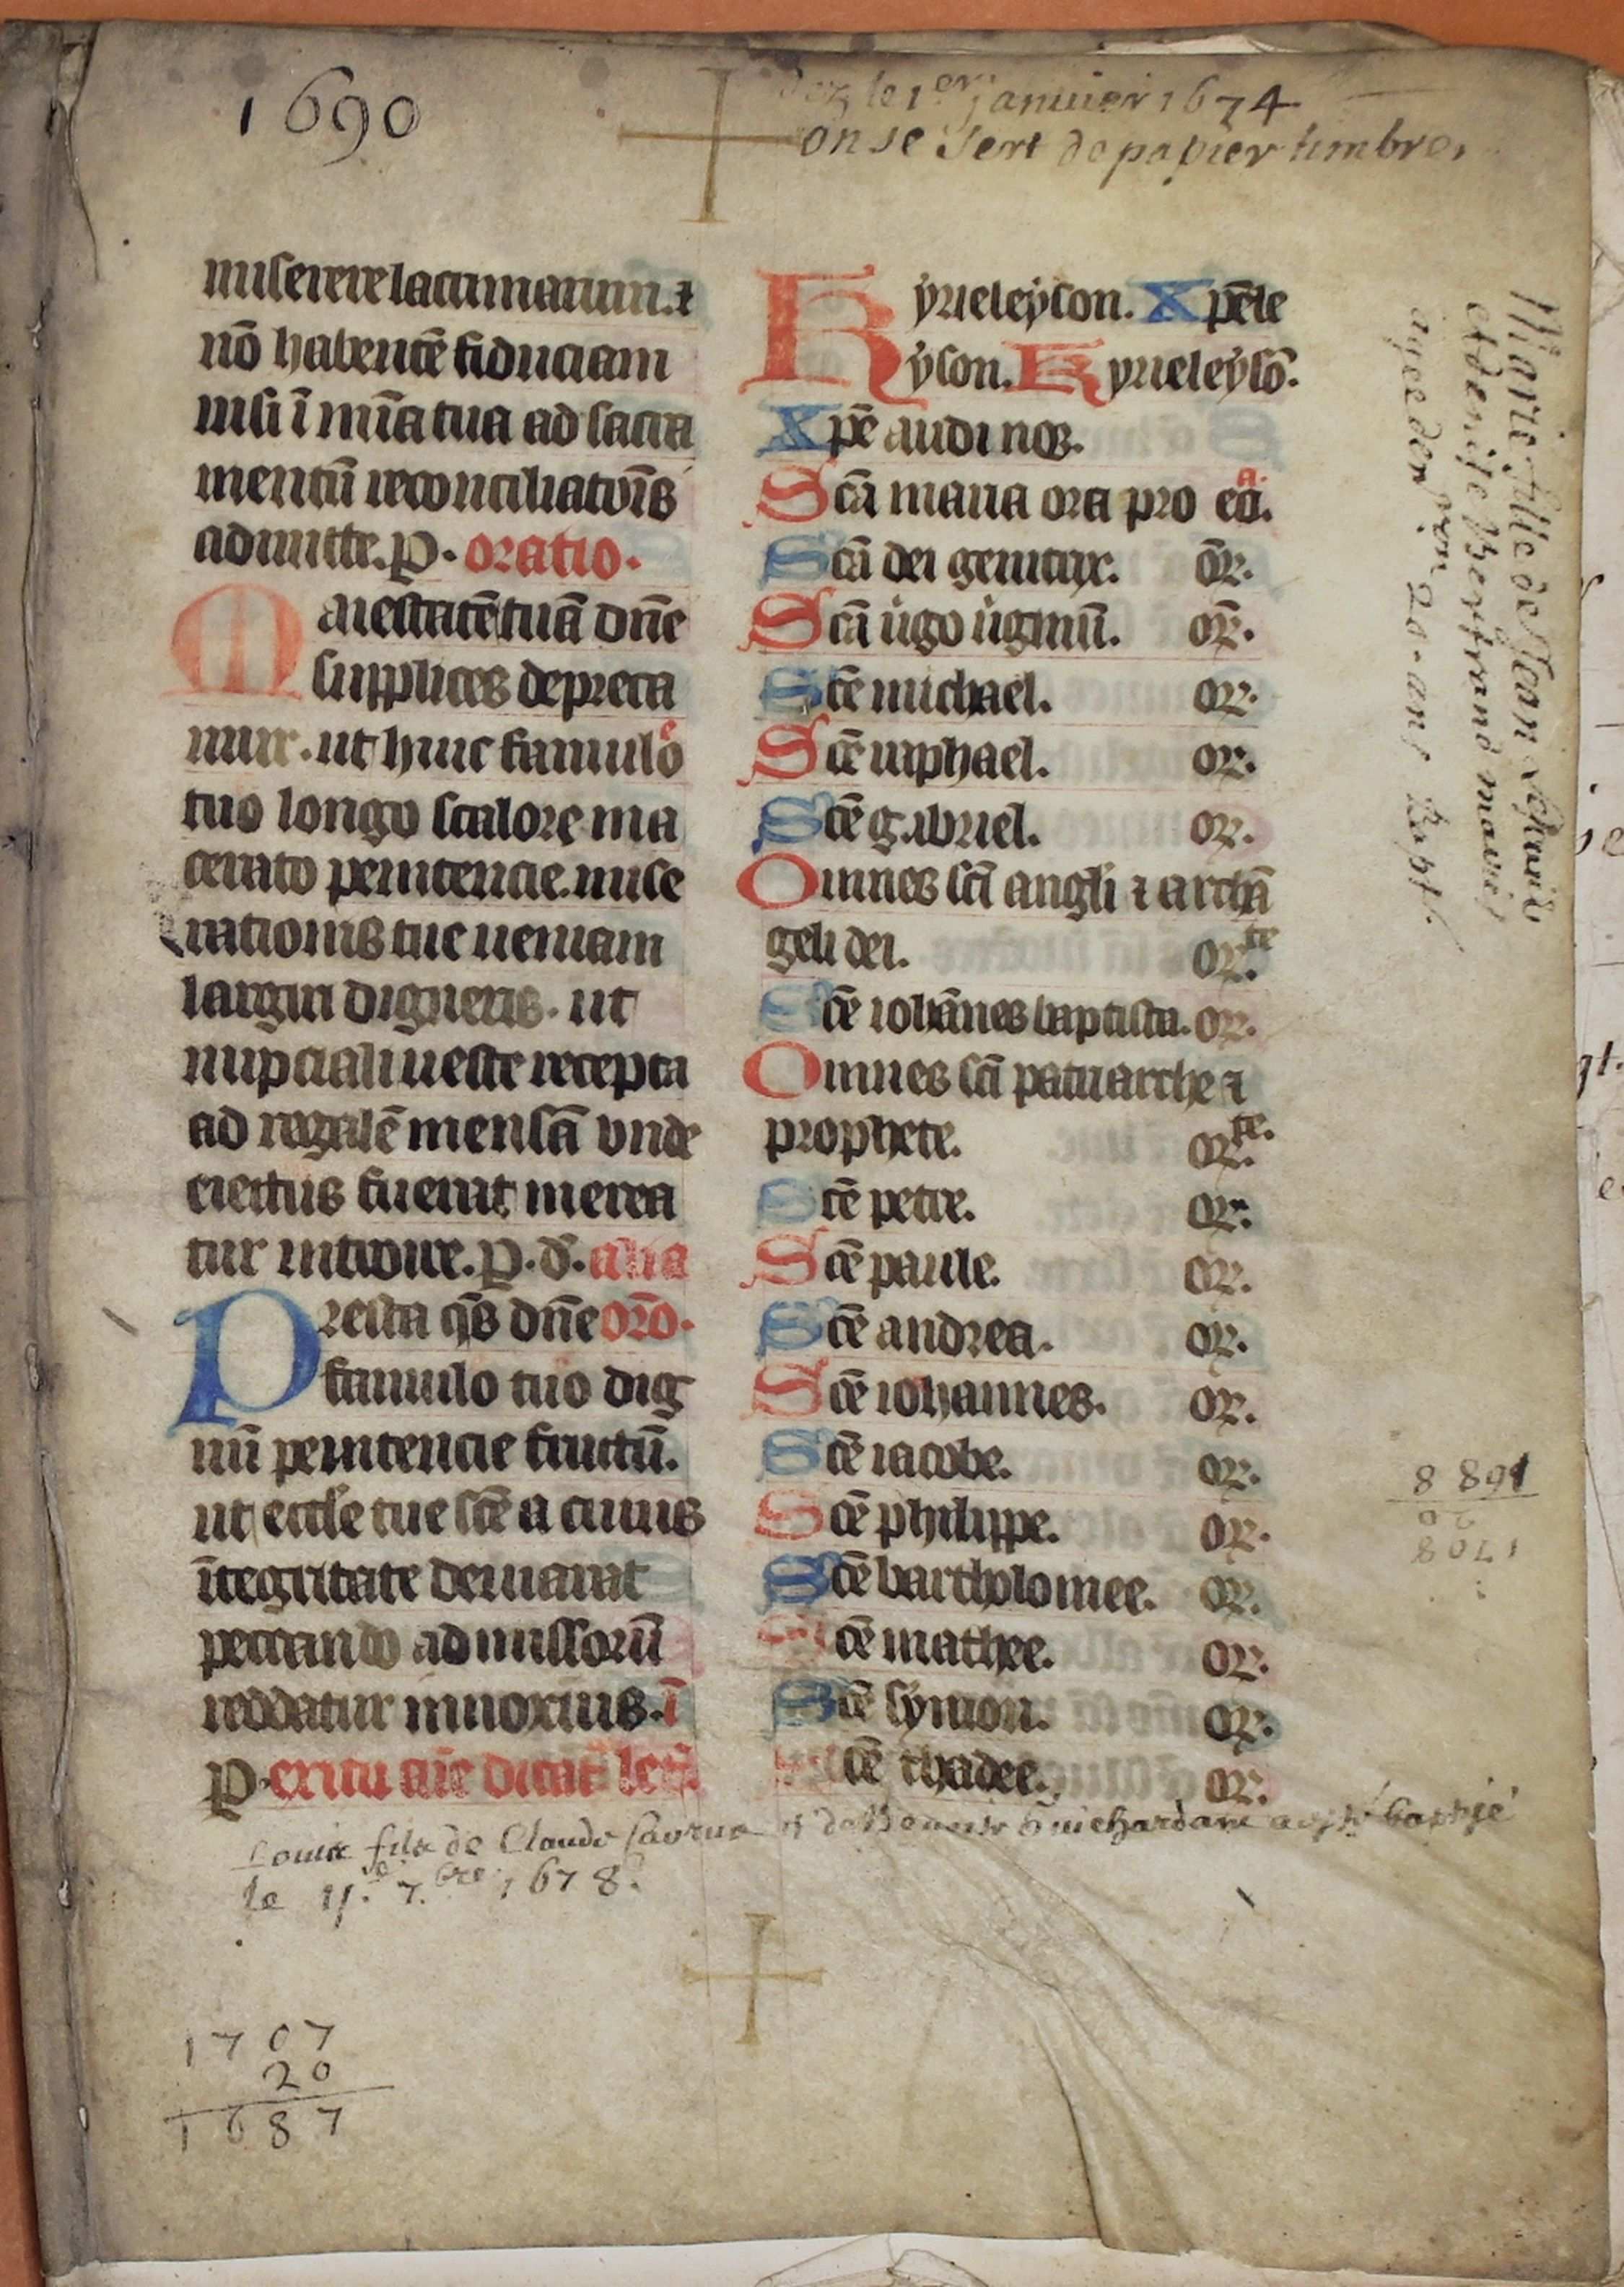 1690
dez le 1er januier 1674
on se sert de papier timbre,
miserere lacrimarum. ⁊
nō habentē fiduciam
nisi ī mīa tua ad sacra
mentū reconciliatōis
admitte. P. oratio.
Maiestatētuā dn̄e
supplices depreca
mur. ut huic famulo
tuo longo scalore ma
cerato penitencie. mise
rationis tue ueniam
largiri digneris. ut
nupciali ueste recepta
ad regalē mensā vnde
eiectus fuerat merea
tur introire. P. d̄. alia
Presta qs̄ dn̄e orō.
famulo tuo dig
nū penitencie fructū.
ut eccl̄e tue scē a cuius
ītegritate deuiarat
peccando admissorū
reddatur innoxius. ī
P. exitu aīe dicat̄
Kyrieleyson. Xpēle
yson. Kyrieleysō.
Xpē audi nos.
Scā maria ora pro eo. a.
Scā dei genitrix. or̄.
Scā uigo uiginū. or̄.
Scē michael. or.
Scē raphael. or.
Scē gabriel. or.
Omnes scī angli ⁊ archā
geli dei. or. te
Scē iohānes baptista. or.
Omnes scī patriarche ⁊
prophete. or. te.
Scē petre. or.
Scē paule. or.
Scē andrea. or.
Scē iohannes. or.
Scē iacobe. or.
Scē philippe. or.
Scē bartholomee. or.
Scē mathee. or.
Scē symon. or.
Scē thadee. or.
Marie fille de Jean
et denise Bertrand maries
agee denviron 20 ans
1688
20
1708
Louis fils de Claude et de Benoiste Guichardam baptisé
le 11.e 7.bre 1678.
1707
20
1687